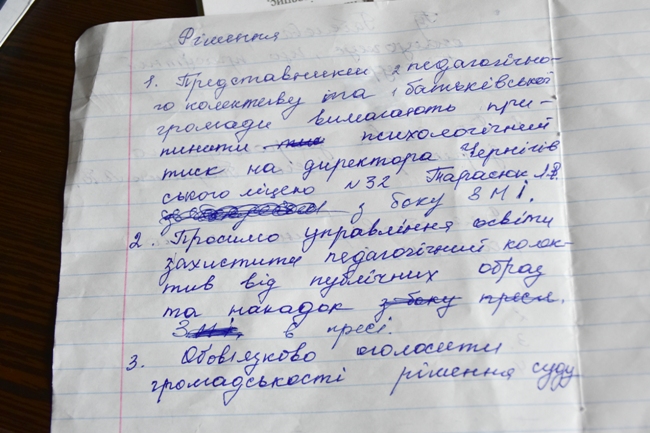 Рішення
1. Представники педагогічно-
го колективу та батьківської
громади вимагають при-
пинити психологічний
тиск на директора Чернігів
ського ліцею №32 Тарасюк Л.В.
з боку ЗМІ.
2. Просимо управління освіти
захистити педагогічний колек-
тив від публічних образ
та нападок з боку преси.
ЗМІ, в пресі.
3. Обов'язково оголосити
громадськості рішення суду